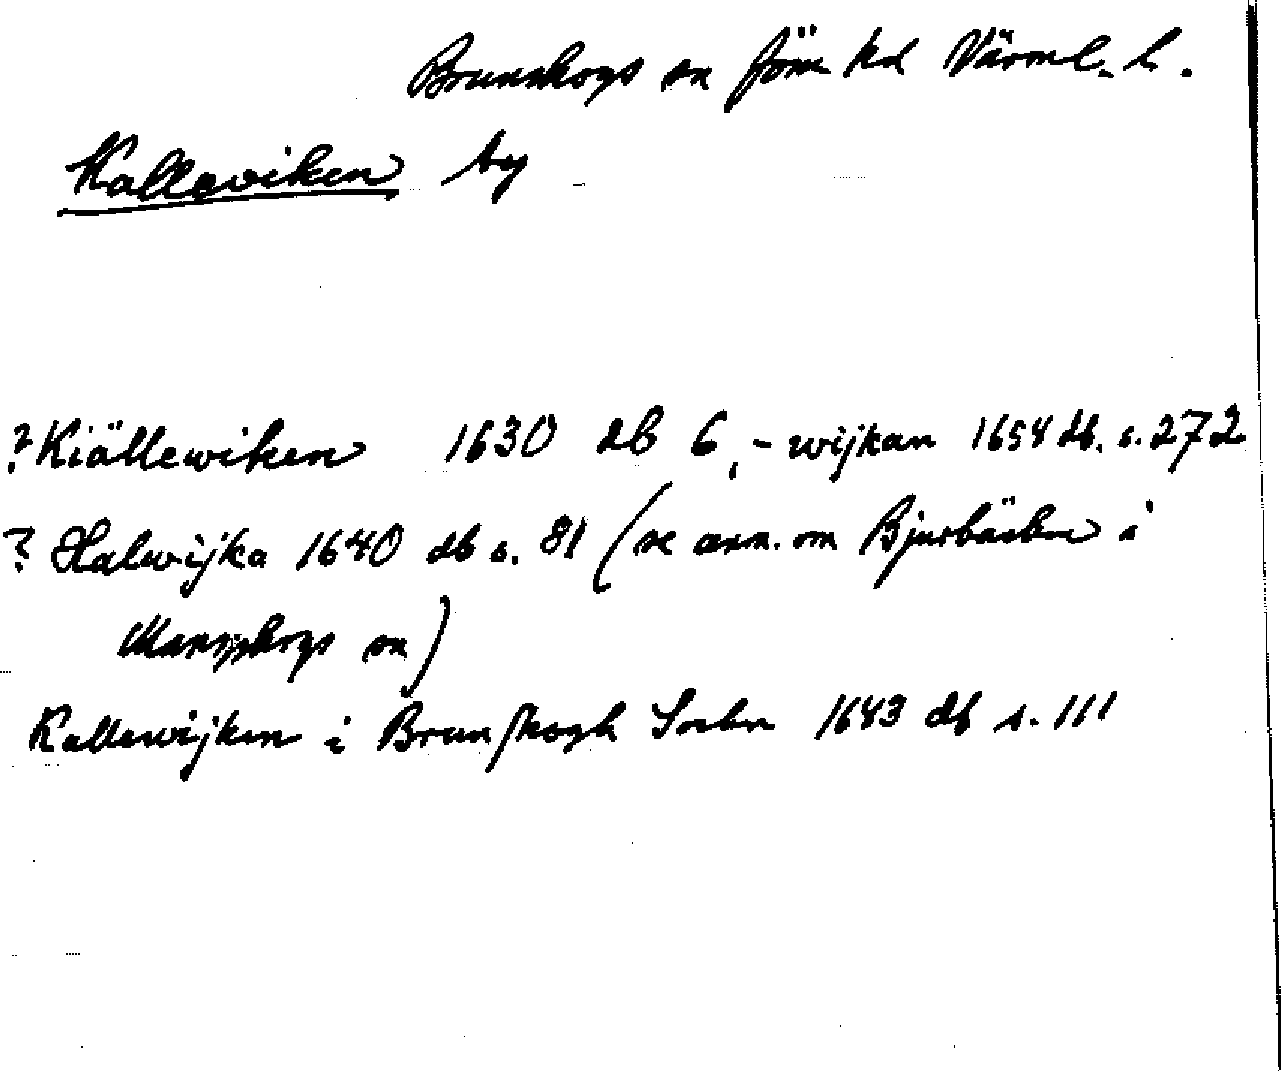 Brunskogs sn Jöss hd Värml. l.
Kalleviken by
? Kiällewiken 1630 db 6, -wijkan 1654 db. s. 272
? Halwijka 1640 db s. 81 (se anm. om Bjurbäcken i
Mangskogs sn)
Kallewijken i Brunskogh Sochn 1643 db s. 111